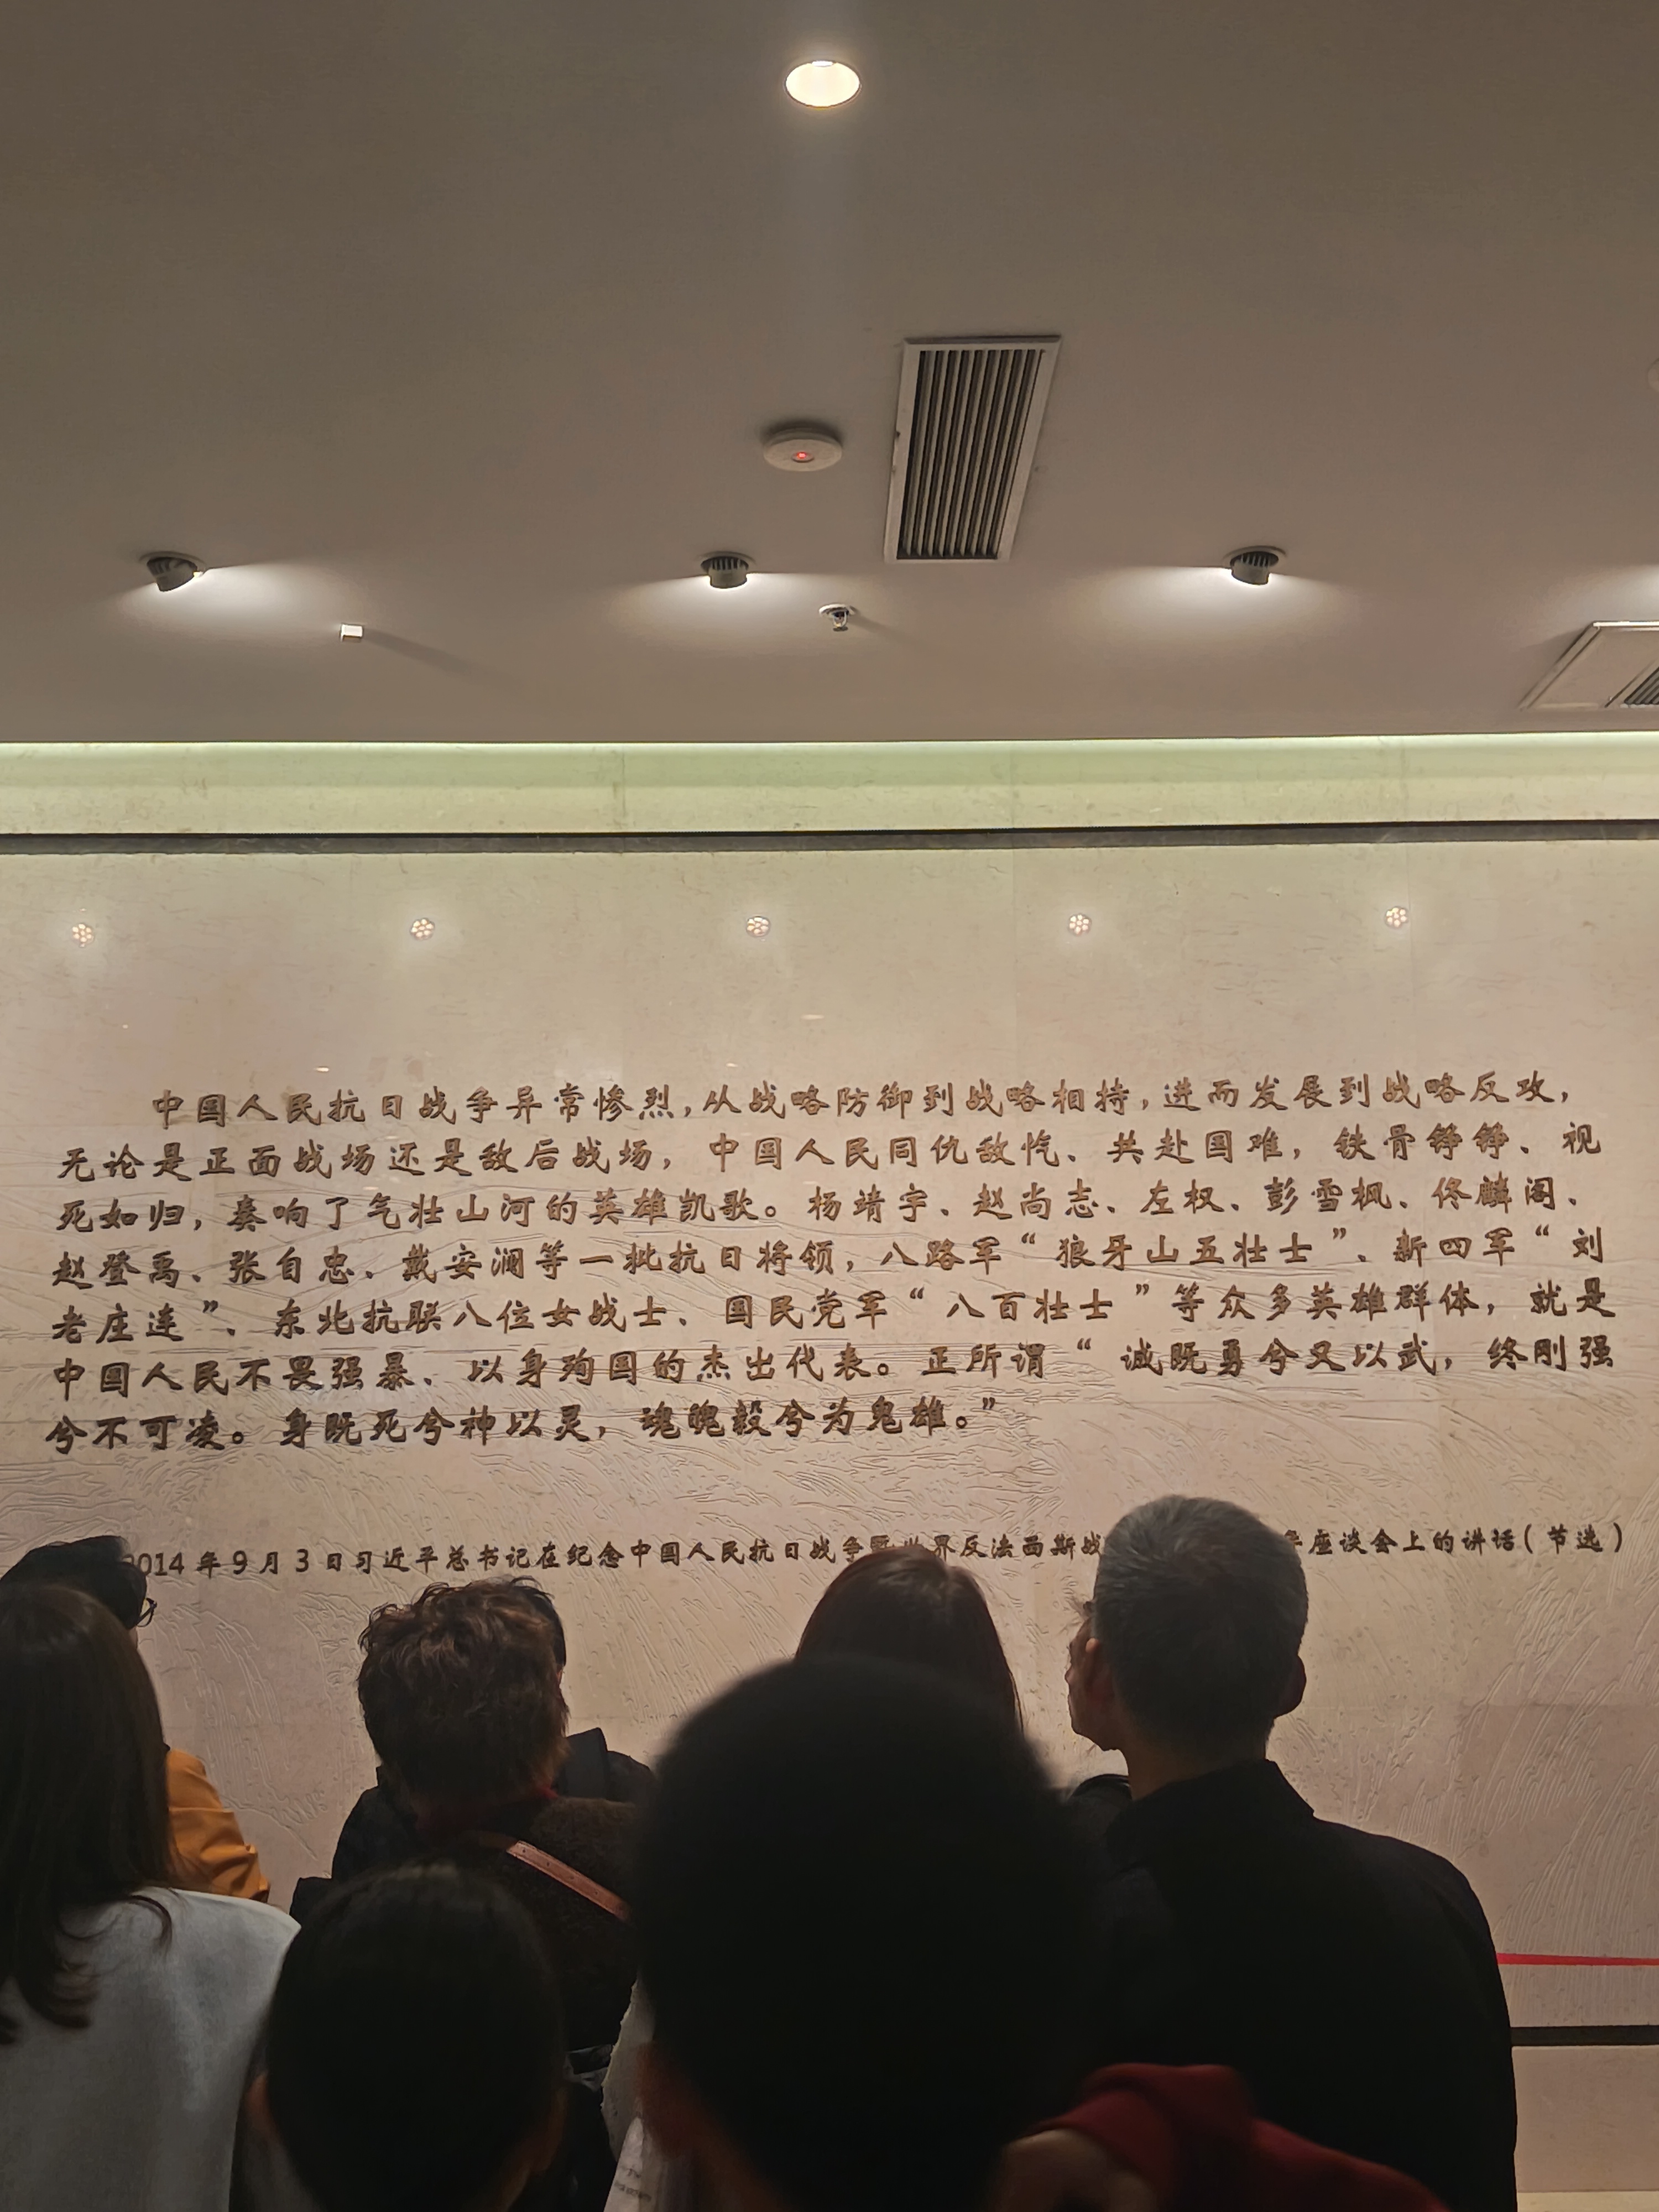 中国人民抗日战争异常惨烈,从战略防御到战略相持,进而发展到战略反攻,
无论是正面战场还是敌后战场,中国人民同仇敌忾、共赴国难,铁骨铮铮、视
死如归,奏响了气壮山河的英雄凯歌。杨靖宇、赵尚志、左权、彭雪枫、佟麟阁、
赵登禹、张自忠、戴安澜等一批抗日将领,八路军“狼牙山五壮士”、新四军“刘
老庄连”、东北抗联八位女战士、国民党军“八百壮士”等众多英雄群体,就是
中国人民不畏强暴、以身殉国的杰出代表。正所谓“诚既勇兮又以武,终刚强
兮不可凌。身既死兮神以灵,魂魄毅兮为鬼雄。”
2014年9月3日习近平总书记在纪念中国人民抗日战争暨世界反法西斯战 座谈会上的讲话(节选)